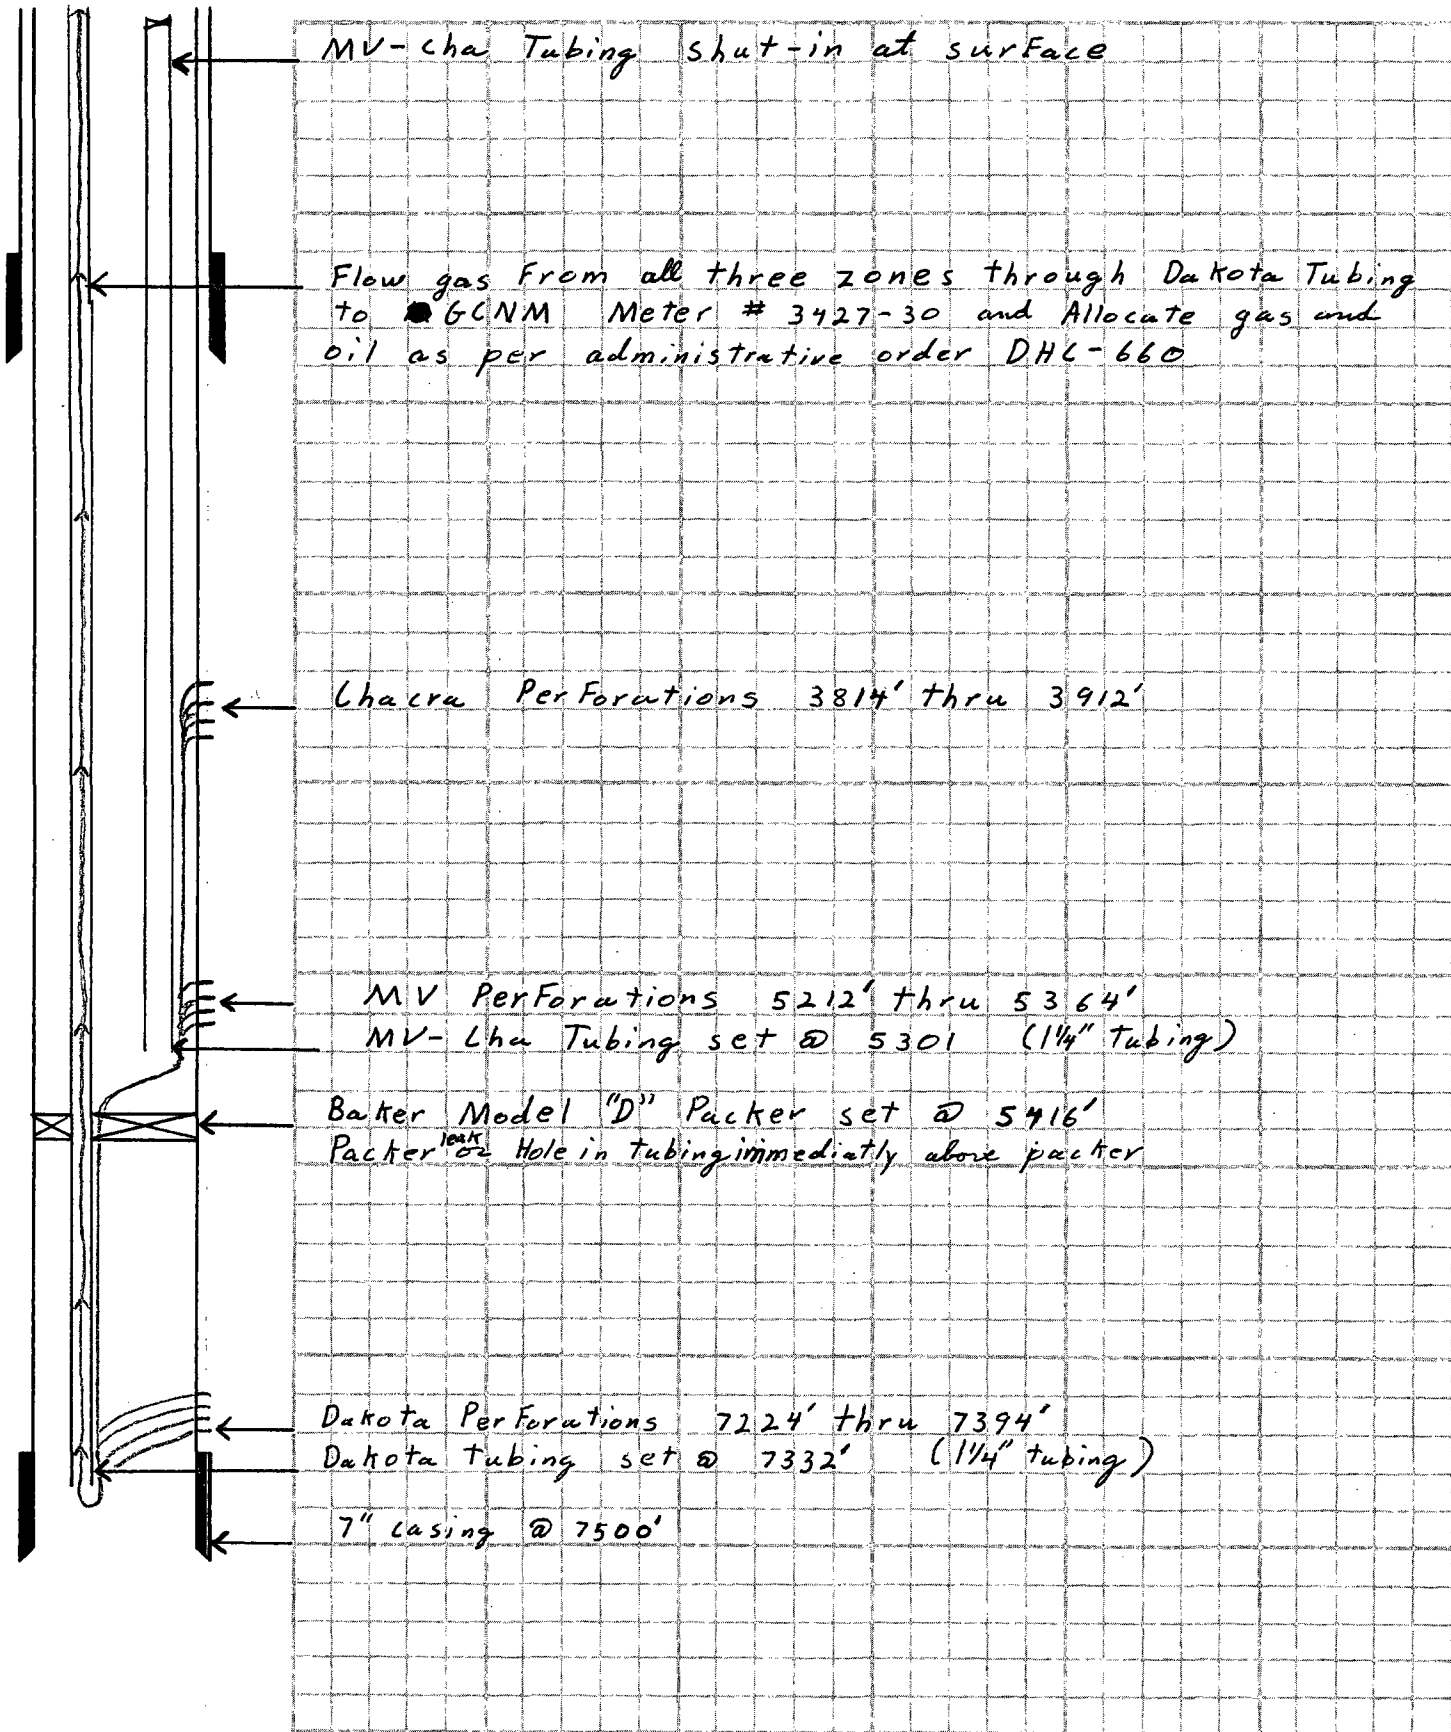 MV-Cha Tubing shut-in at surface
Flow gas From all three zones through Dakota Tubing
to GCNM Meter # 3427-30 and Allocate gas and
oil as per administrative order DHC-660
Chacra PerForations 3814' thru 3912'
MV PerForations 5212' thru 5364'
MV-Cha Tubing set @ 5301 (1¼" Tubing)
Baker Model "D" Packer set @ 5416'
Packer leak or Hole in tubing immediatly above packer
Dakota PerForations 7224' thru 7394'
Dakota tubing set @ 7332' (1¼" tubing)
7" casing @ 7500'